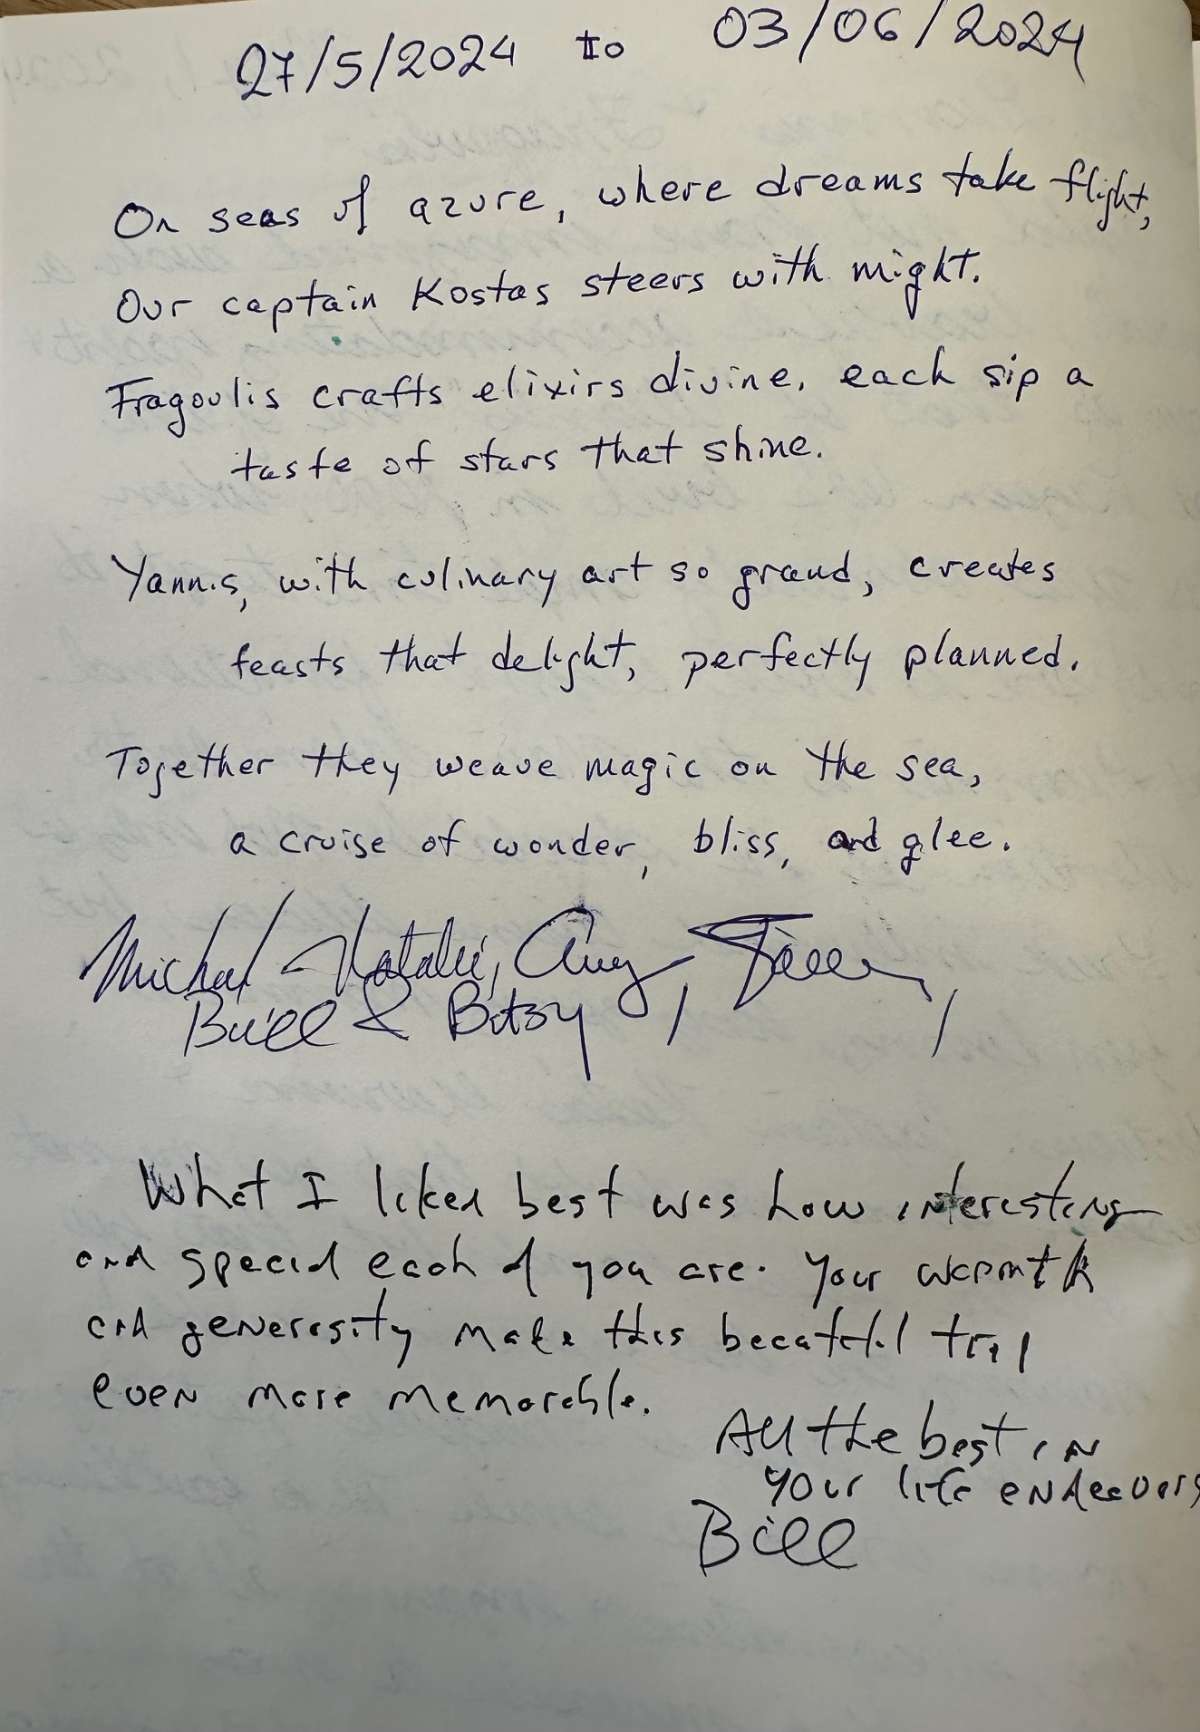 27/5/2024 to 03/06/2024
On seas of azure, where dreams take flight,
Our captain Kostas steers with might.
Fragoulis crafts elixirs divine, each sip a
taste of stars that shine.
Yannis, with culinary art so grand, creates
feasts that delight, perfectly planned.
Together they weave magic on the sea,
a cruise of wonder, bliss, and glee.
Michael Natalie, Amy,
Bill & Betsy
What I liked best was how interesting
and special each of you are. Your warmth
and generosity make this beautiful trip
even more memorable.
All the best in
your life endeavors
Bill